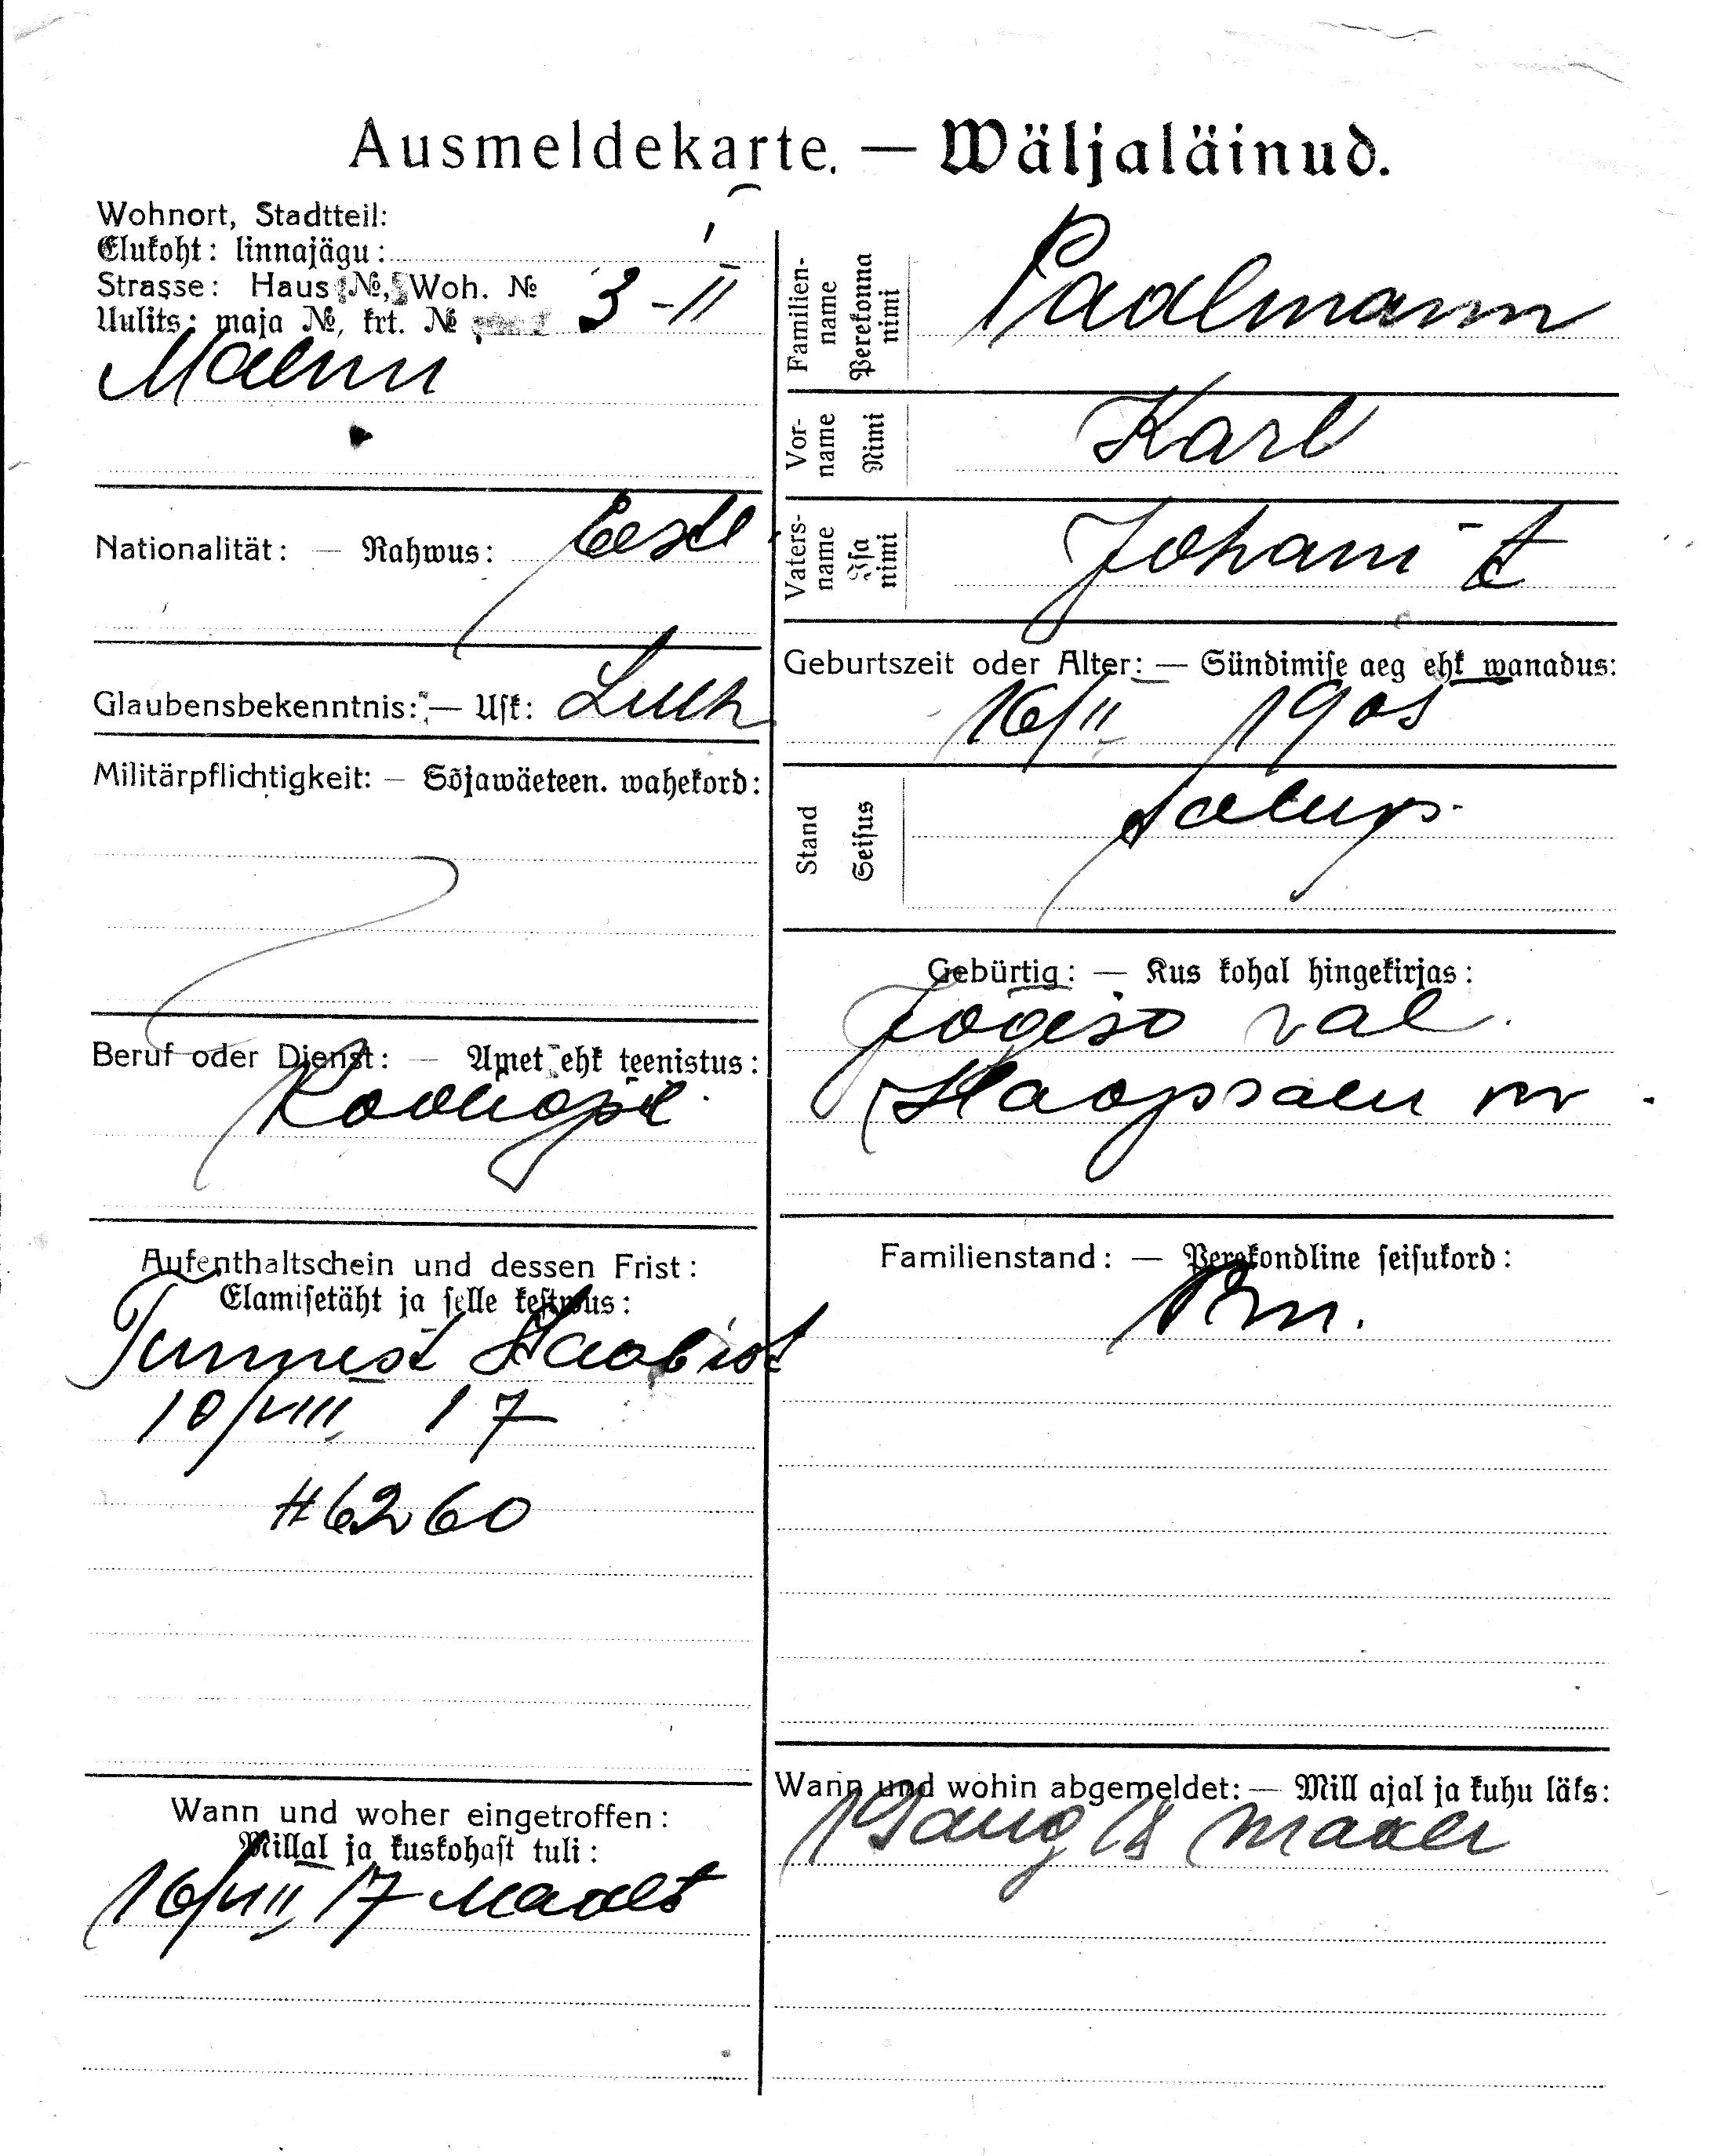 Ausmeldekarte. — Wäljaläinud.
Wohnort, Stadtteil:
Elukoht: linnajägu:
Strasse: Haus №, Woh. №
Uulits: maja №, krt. № 3-II
Nationalität: — Rahwus: Eestl
Glaubensbekenntnis: — Usk: Luth
Militärpflichtigkeit: — Sõjawäeteen. wahekord:
Beruf oder Dienst: — Amet ehk teenistus:
Kooliöpil.
Aufenthaltschein und dessen Frist:
Elamisetäht ja selle kestwus:
Tunnest
10/VIII 17
#6260
Wann und woher eingetroffen:
Millal ja kuskohast tuli:
16/VIII 17 Maalt
Familien-
name
Perekonna
nimi
Paalmann
Vor-
name
Nimi
Karl
Vaters-
name
Isa
nimi
Johani t
Geburtszeit oder Alter: — Sündimise aeg ehk wanadus:
16/II 1905
Stand
Seisus
talup.
Gebürtig: — Kus kohal hingekirjas:
val.
Haapsalu kr.
Familienstand: — Perekondline seisukord:
Wann und wohin abgemeldet: — Mill ajal ja kuhu läks:
19 aug 18 maale